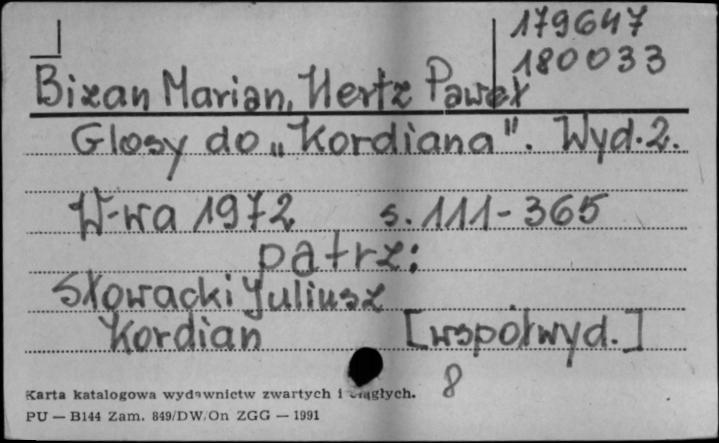 179647
180033
Bizan Marian, Hertz Paweł
Glosy do „Kordiana". Wyd. 2.
W-wa 1972 s. 111-365
patrz:
Słowacki Juliusz
Kordian [współwyd.]
8
Karta katalogowa wydawnictw zwartych i ciągłych.
PU — B144 Zam. 849/DW/On ZGG — 1991